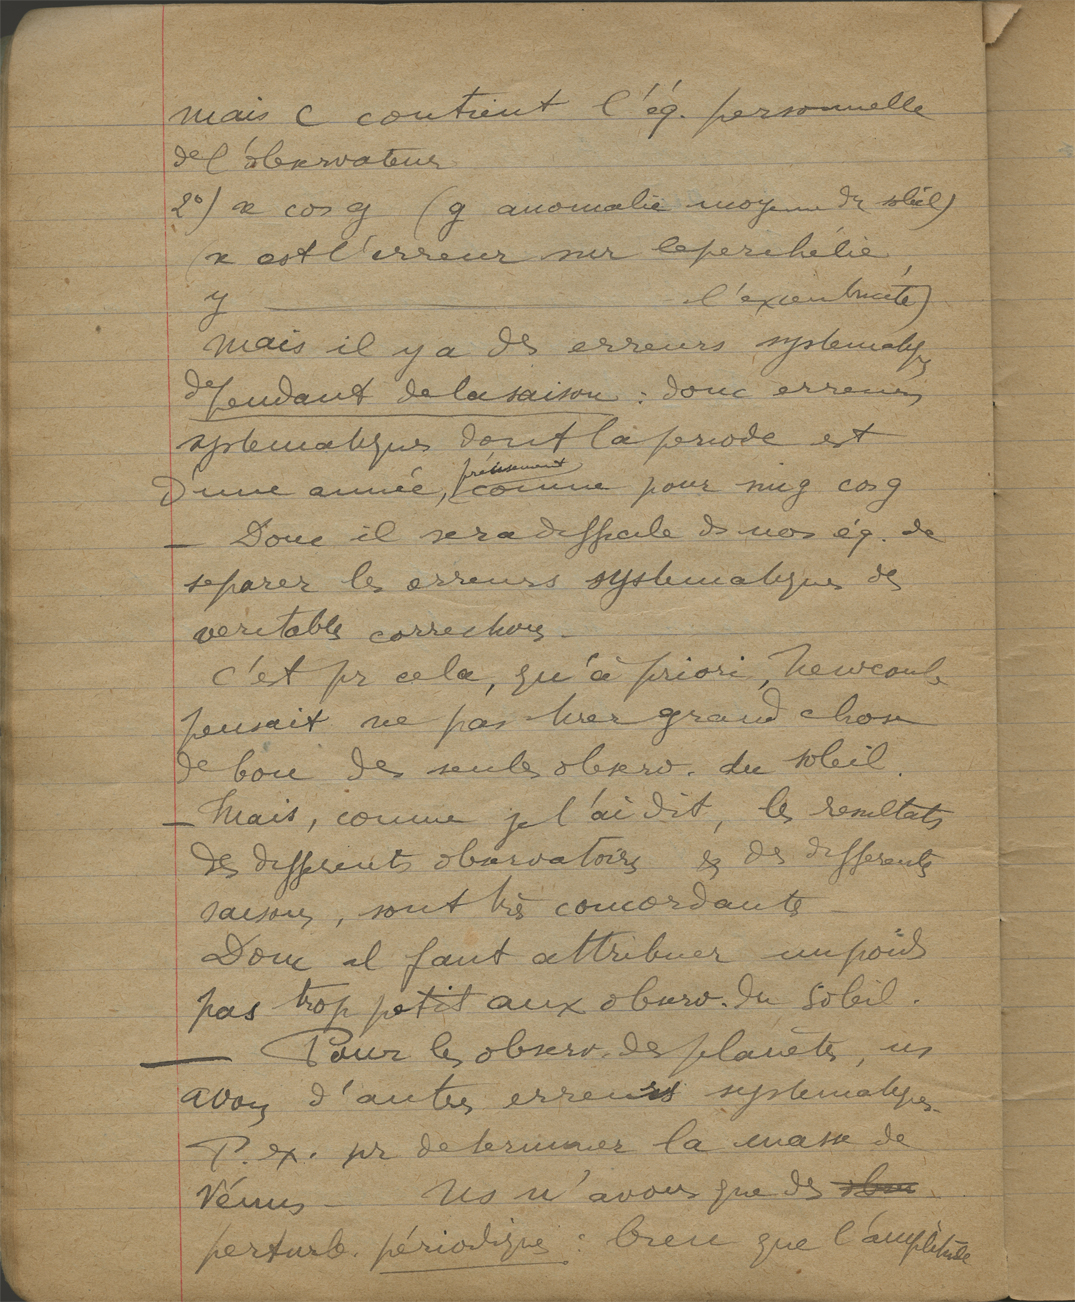 mais C contient l'éq. personnelle
de l'observateur
2°) x cos g (g anomalie moyenne du soleil)
(x est l'erreur sur le perihélie,
y ——— l'excentricité)
Mais il y a des erreurs systematiqs
dependant de la saison : donc erreurs
systematiques dont la periode est
d'une année, précisement comme pour sin g cos g
— Donc il sera difficile ds nos éq. de
separer les erreurs systematiques des
veritables corrections —
C'est pr cela, qu'à priori, Newcomb
pensait ne pas tirer grand chose
de bon des seules observ. du soleil.
— Mais, comme je l'ai dit, les resultats
des differents observatoires & des differentes
saisons, sont très concordants —
Donc il faut attribuer un poids
pas trop petit aux observ. du Soleil.
— Pour les observ. des planètes, ns
avons d'autres erreurs systematiqes.
P. ex. pr determiner la masse de
Vénus — Ns n'avons que des
perturb. périodiques : bien que l'amplitude